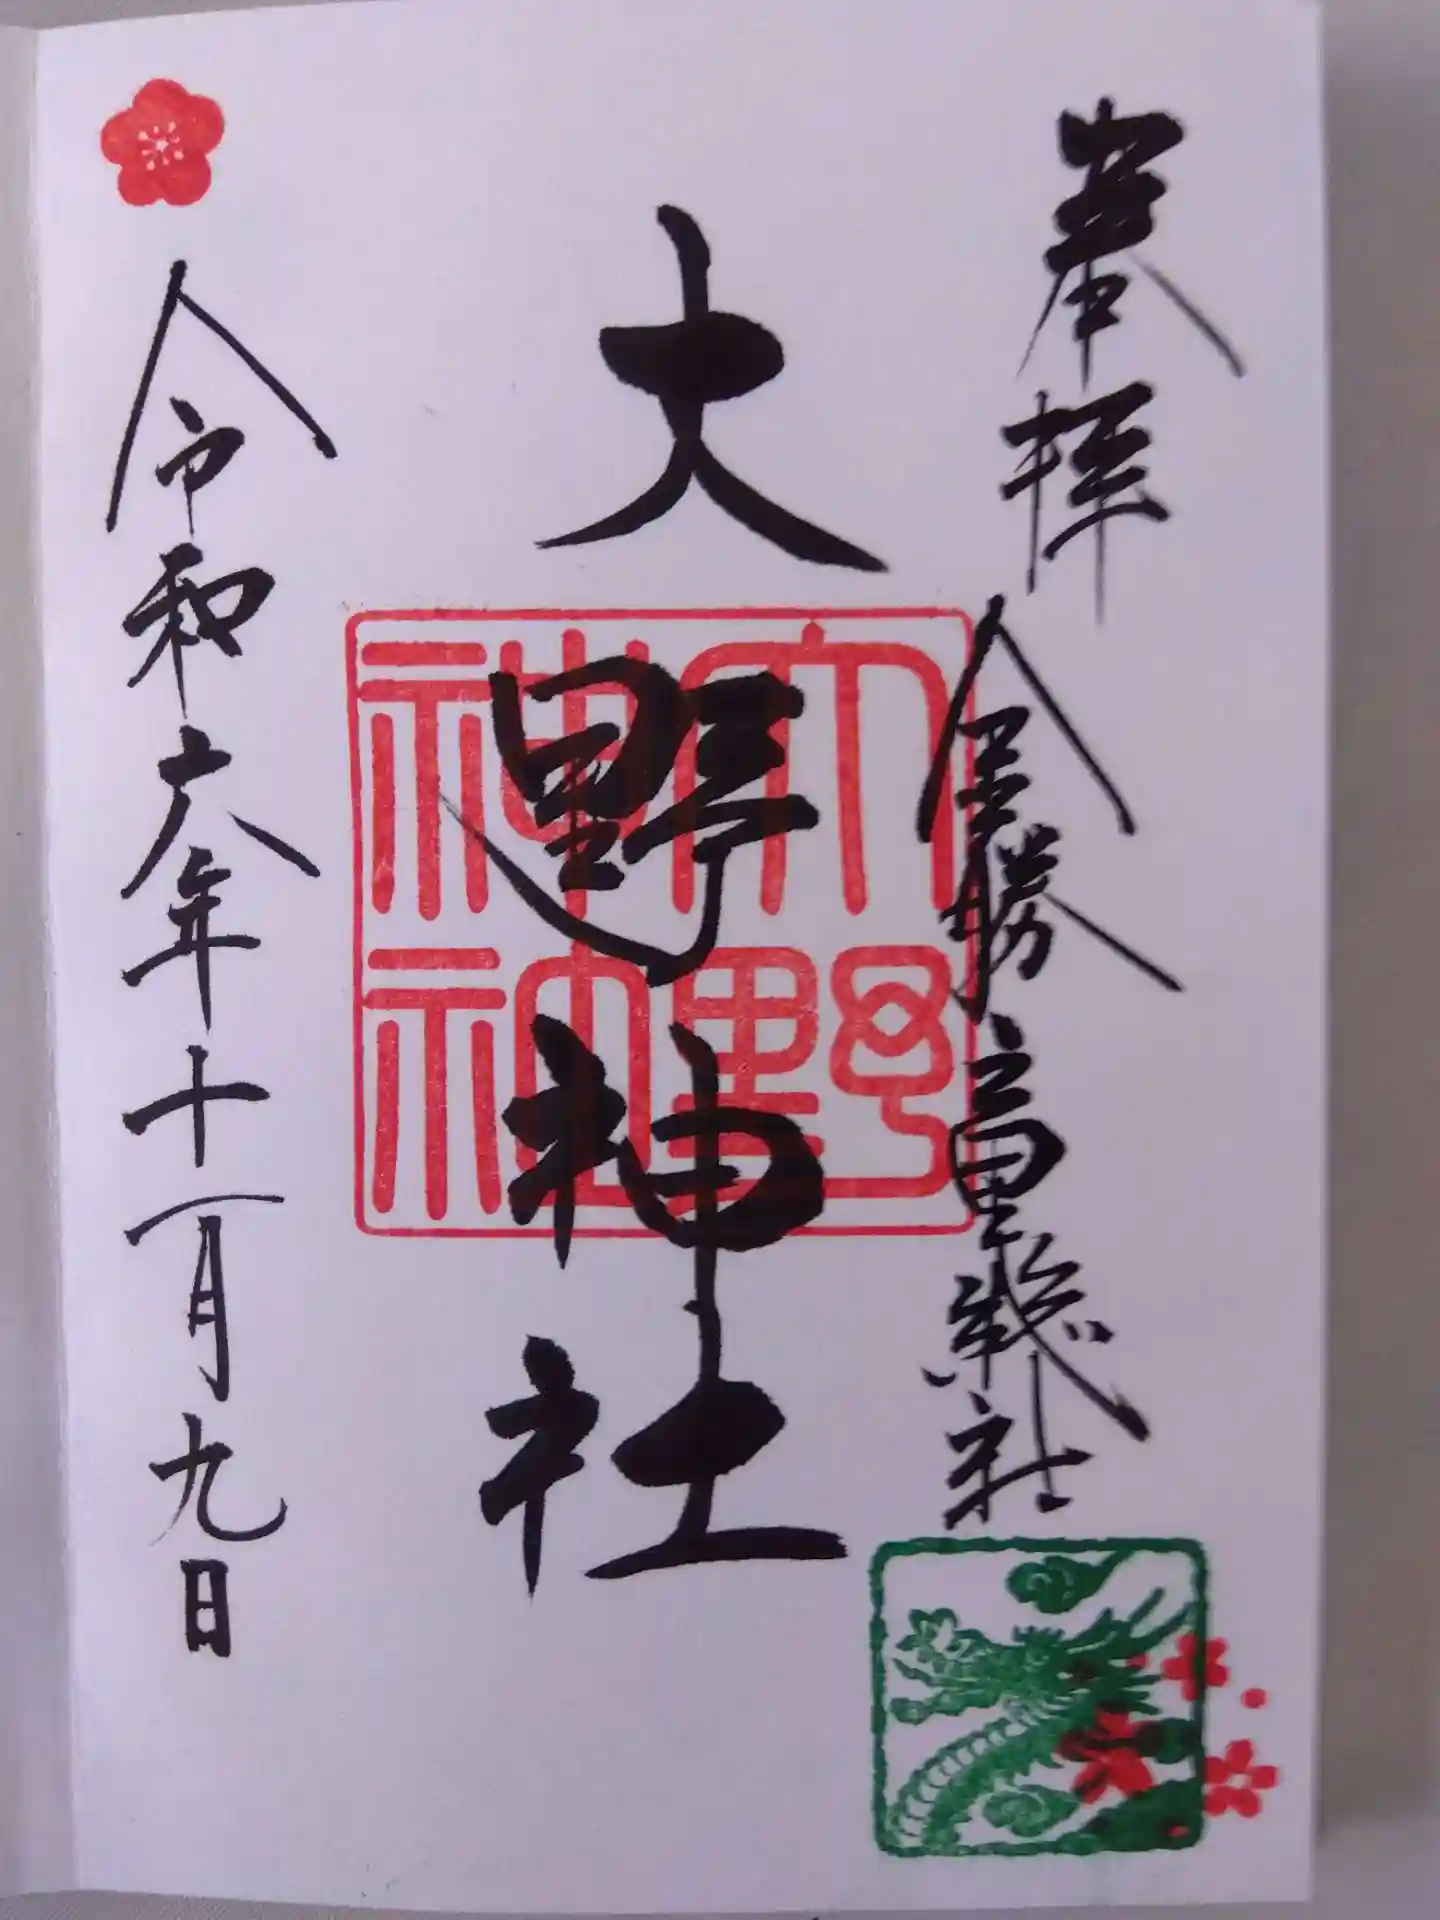 奉拝
金勝之里総社
大野神社
大野
神社
令和六年十一月九日